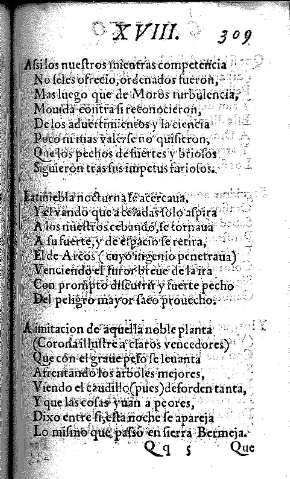 XVIII. 309
Assi los nuestros mientras competencia
No se les ofrecio, ordenados fueron,
Mas luego que de Moros turbulencia,
Mouida contra si reconocieron,
De los aduertimientos y la ciencia
Poco ni mas valerse no quisieron,
Que los pechos de fuertes y briosos
Siguieron tras sus impetus furiosos.
La tiniebla nocturna se acercaua,
Y el vando que a celadas solo aspira
A los nuestros cebando, se tornaua
A su fuerte, y de espacio se retira,
El de Arcos (cuyo ingenio penetraua)
Venciendo el furor breue de la ira
Con prompto discurrir y fuerte pecho
Del peligro mayor saco prouecho.
A imitacion de aquella noble planta
(Corona illustre a claros vencedores)
Que con el graue peso se leuanta
Afrentando los arboles mejores,
Viendo el caudillo (pues) desorden tanta,
Y que las cosas yuan a peores,
Dixo entre si, esta noche se apareja
Lo mismo que passò en sierra Bermeja.
Qq 5 Que